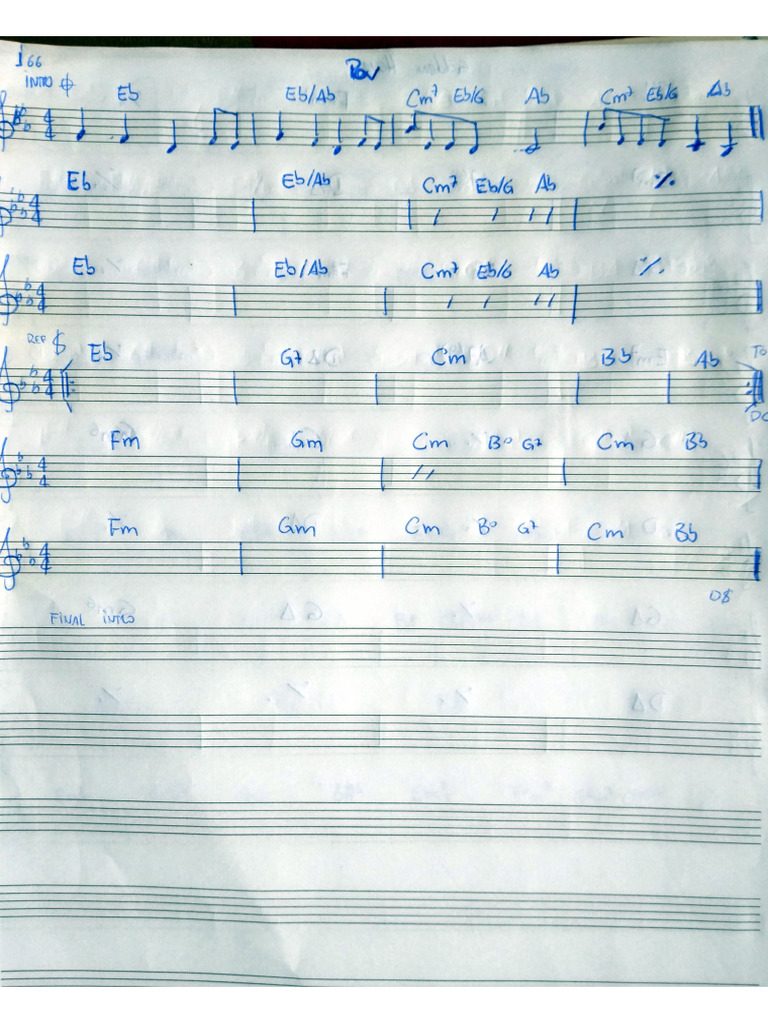 ♩66
Bov
INTRO 𝄌
Eb Eb/Ab Cm7 Eb/G Ab Cm7 Eb/G Ab
4/4
Eb Eb/Ab Cm7 Eb/G Ab ٪
4/4
Eb Eb/Ab Cm7 Eb/G Ab ٪
4/4
REF 𝄋 Eb G7 Cm Bb Ab TO
4/4
DC
Fm Gm Cm Bo G7 Cm Bb
4/4
Fm Gm Cm Bo G7 Cm Bb
4/4
D$
FINAL INTRO